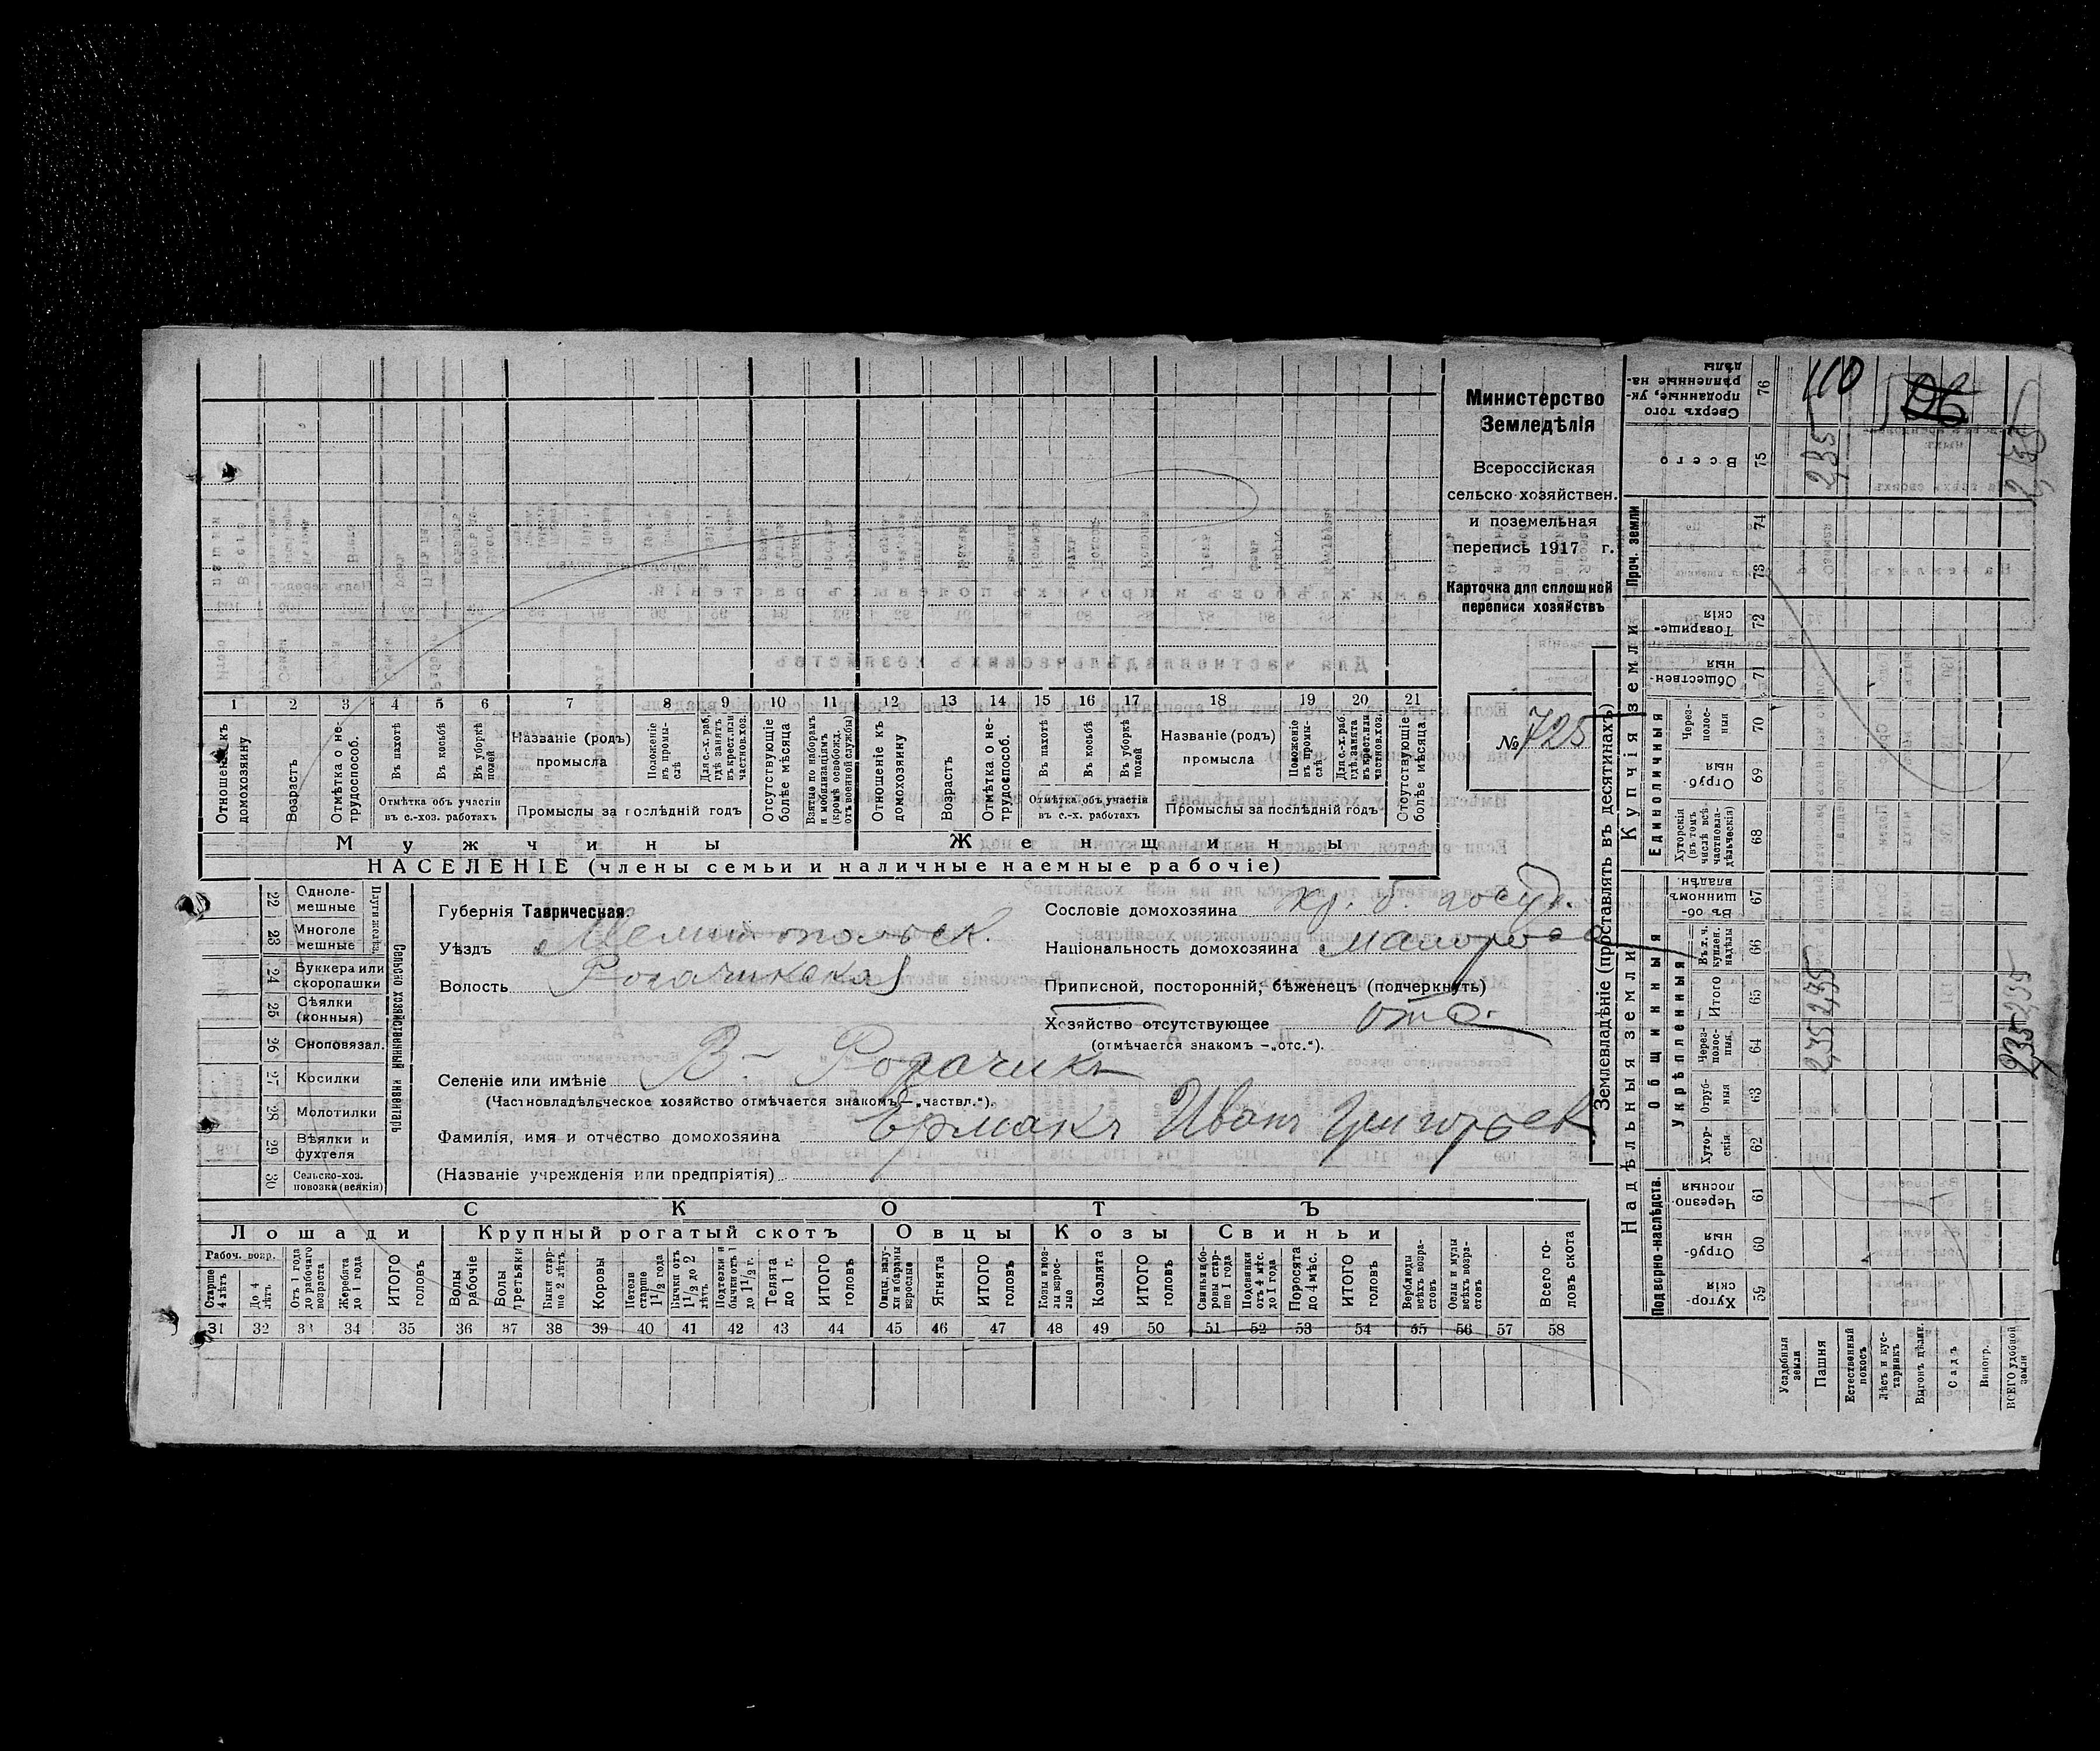 Министерство
Земледѣлія
Всероссійская
сельско-хозяйствен.
и поземельная
перепись 1917 г.
Карточка для сплошной
переписи хозяйствъ
№ 725
1 2 3 4 5 6 7 8 9 10 11 12 13 14 15 16 17 18 19 20 21
Отношеніе къ домохозяину
Возрастъ
Отмѣтка о не-трудоспособ.
Въ пахотѣ
Въ косьбѣ
Въ уборкѣ полей
Отмѣтка объ участіи въ с.-хоз. работахъ
Названіе (родъ) промысла
Положеніе въ промы-слѣ
Для с.-х. раб. гдѣ занятъ въ крест. или частнов. хоз.
Промыслы за послѣдній годъ
Отсутствующіе болѣе мѣсяца
Взятые по наборамъ и мобилизаціямъ (кромѣ освобожд. отъ военной службы)
Отношеніе къ домохозяину
Возрастъ
Отмѣтка о не-трудоспособ.
Въ пахотѣ
Въ косьбѣ
Въ уборкѣ полей
Отмѣтка объ участіи въ с.-х. работахъ
Названіе (родъ) промысла
Положеніе въ промы-слѣ
Для с.-х. раб. гдѣ занята въ крест. или частнов. хоз.
Промыслы за послѣдній годъ
Отсутствующіе болѣе мѣсяца
Мужчины Женщины
НАСЕЛЕНІЕ (члены семьи и наличные наемные рабочіе)
22 Одноле-мешные
23 Многоле мешные
24 Буккера или скоропашки
25 Сѣялки (конныя)
26 Сноповязал.
27 Косилки
28 Молотилки
29 Вѣялки и фухтеля
30 Сельско-хоз. повозки (всякія)
Сельско хозяйственный инвентарь
Губернія Таврическая.
Уѣздъ Мелитопольск.
Волость Рогачикская
Сословіе домохозяина кр. б. госуд.
Національность домохозяина малоросс
Приписной, посторонній, бѣженецъ (подчеркнуть)
Хозяйство отсутствующее отс.
(отмѣчается знакомъ —„отс.“).
Селеніе или имѣніе В- Рогачикъ
(Частновладѣльческое хозяйство отмѣчается знакомъ—„частвл.“).
Фамилія, имя и отчество домохозяина Ермакъ Иванъ Григорьев
(Названіе учрежденія или предпріятія)
СКОТЪ
Лошади Крупный рогатый скотъ Овцы Козы Свиньи
Рабоч. возр.
Старше 4 лѣтъ
До 4 лѣтъ
Отъ 1 года до рабочаго возраста
Жеребята до 1 года
ИТОГО головъ
Волы рабочіе
Волы третьяки
Быки стар-ше 2 лѣтъ
Коровы
Нетели старше 1 1/2 года
Бычки отъ 1 1/2 до 2 лѣтъ
Подтелки и бычки отъ 1 до 1 1/2 г.
Телята до 1 г.
ИТОГО головъ
Овцы, валу-хи и бараны взрослые
Ягнята
ИТОГО головъ
Козы и коз-лы взрос-лые
Козлята
ИТОГО головъ
Свиньи бо-ровы стар-ше 1 года
Подсвинки отъ 4 мѣс. до 1 года
Поросята до 4 мѣс.
ИТОГО головъ
Верблюды всѣхъ возра-стовъ
Ослы и мулы всѣхъ возра-стовъ
Всего го-ловъ скота
31 32 33 34 35 36 37 38 39 40 41 42 43 44 45 46 47 48 49 50 51 52 53 54 55 56 57 58
Землевладѣніе (проставлять въ десятинахъ)
Надѣльныя земли Купчія земли Проч. земли
Подворно-наслѣдств.
Общинныя
Укрѣпленныя
Единоличныя
Сверхъ того проданные, ук-рѣпленные на-дѣлы 76
Всего 75
74
73
Товарище-скія 72
Обществен-ныя 71
Через-полос-ныя 70
Отруб-ныя 69
Хуторскія (въ томъ числѣ всѣ частновла-дѣльческія) 68
Въ об-щинномъ владѣн. 67
Въ т. ч. куплен. надѣлы 66
Итого 65
Через-полос-ныя 64
Отруб-ныя 63
Хутор-скія 62
Черезпо лосныя 61
Отруб-ныя 60
Хутор-скія 59
Усадебныя земли
Пашня
Естественный покосъ
Лѣсъ и кус-тарникъ
Выгонъ цѣлин.
Садъ
Виногр.
ВСЕГО удобной земли
110
2,35 2,35
2,35 2,35
2,35 2,35